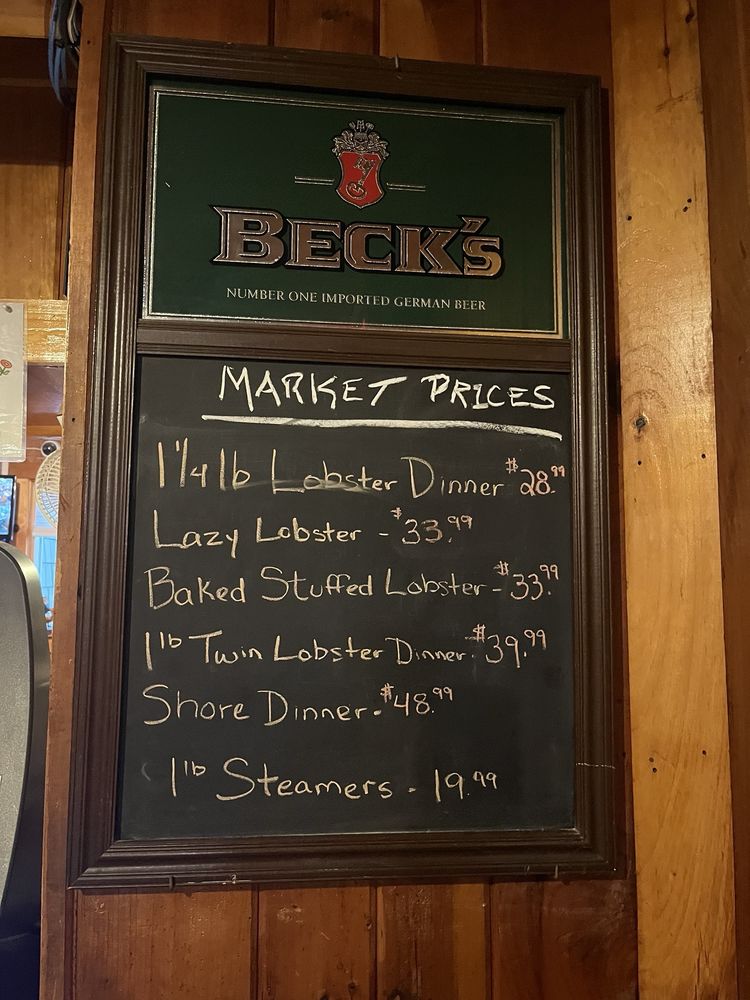 BECK'S
NUMBER ONE IMPORTED GERMAN BEER
MARKET PRICES
1 1/4 lb Lobster Dinner $28.99
Lazy Lobster - $33.99
Baked Stuffed Lobster - $33.99
1 lb Twin Lobster Dinner - $39.99
Shore Dinner - $48.99
1 lb Steamers - 19.99